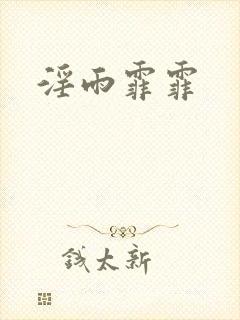 淫雨霏霏
钱太新